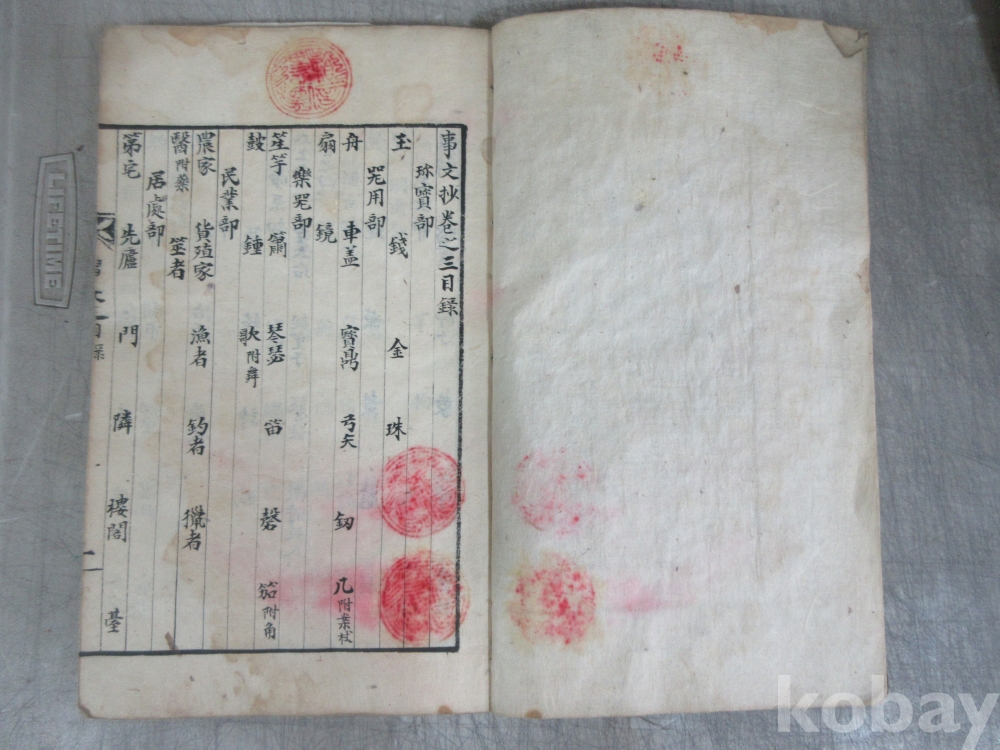 事文抄卷之三目錄
珎寶部
玉 錢 金 珠
咒用部
舟 車盖 寶鼎 弓矢 釼 几附案杖
扇 鏡
樂咒部
笙竽 簫 琴瑟 笛 磬 笳附角
鼓 鍾 歌附舞
民業部
農家 貨殖家 漁者 釣者 獵者
醫附藥 筮者
居處部
第宅 先廬 門 隣 樓閣 臺
kobay
LIFETIME